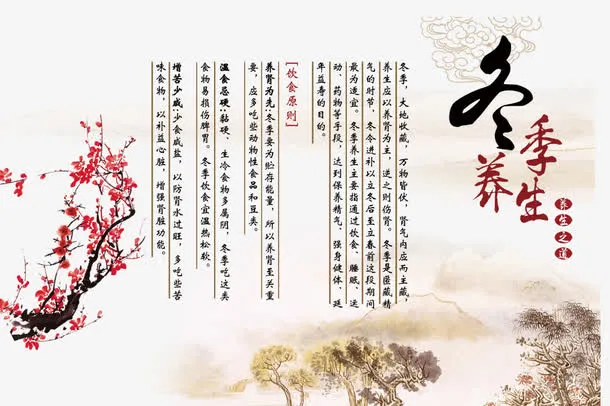 冬季养生
养生之道
冬季，大地收藏，万物皆伏，肾气内应而主藏。
养生应以养肾为主，逆之则伤肾。冬季是匿藏精
气的时节，冬令进补以立冬后至立春前这段期间
最为适宜。冬季养生主要指通过饮食、睡眠、运
动、药物等手段，达到保养精气、强身健体、延
年益寿的目的。
[饮食原则]
养肾为先:冬季要为贮存能量，所以养肾至关重
要，应多吃些动物性食品和豆类。
温食忌硬:黏硬、生冷食物多属阴，冬季吃这类
食物易损伤脾胃。冬季饮食宜温热松软。
增苦少咸:少食咸盐，以防肾水过旺，多吃些苦
味食物，以补益心脏，增强肾脏功能。